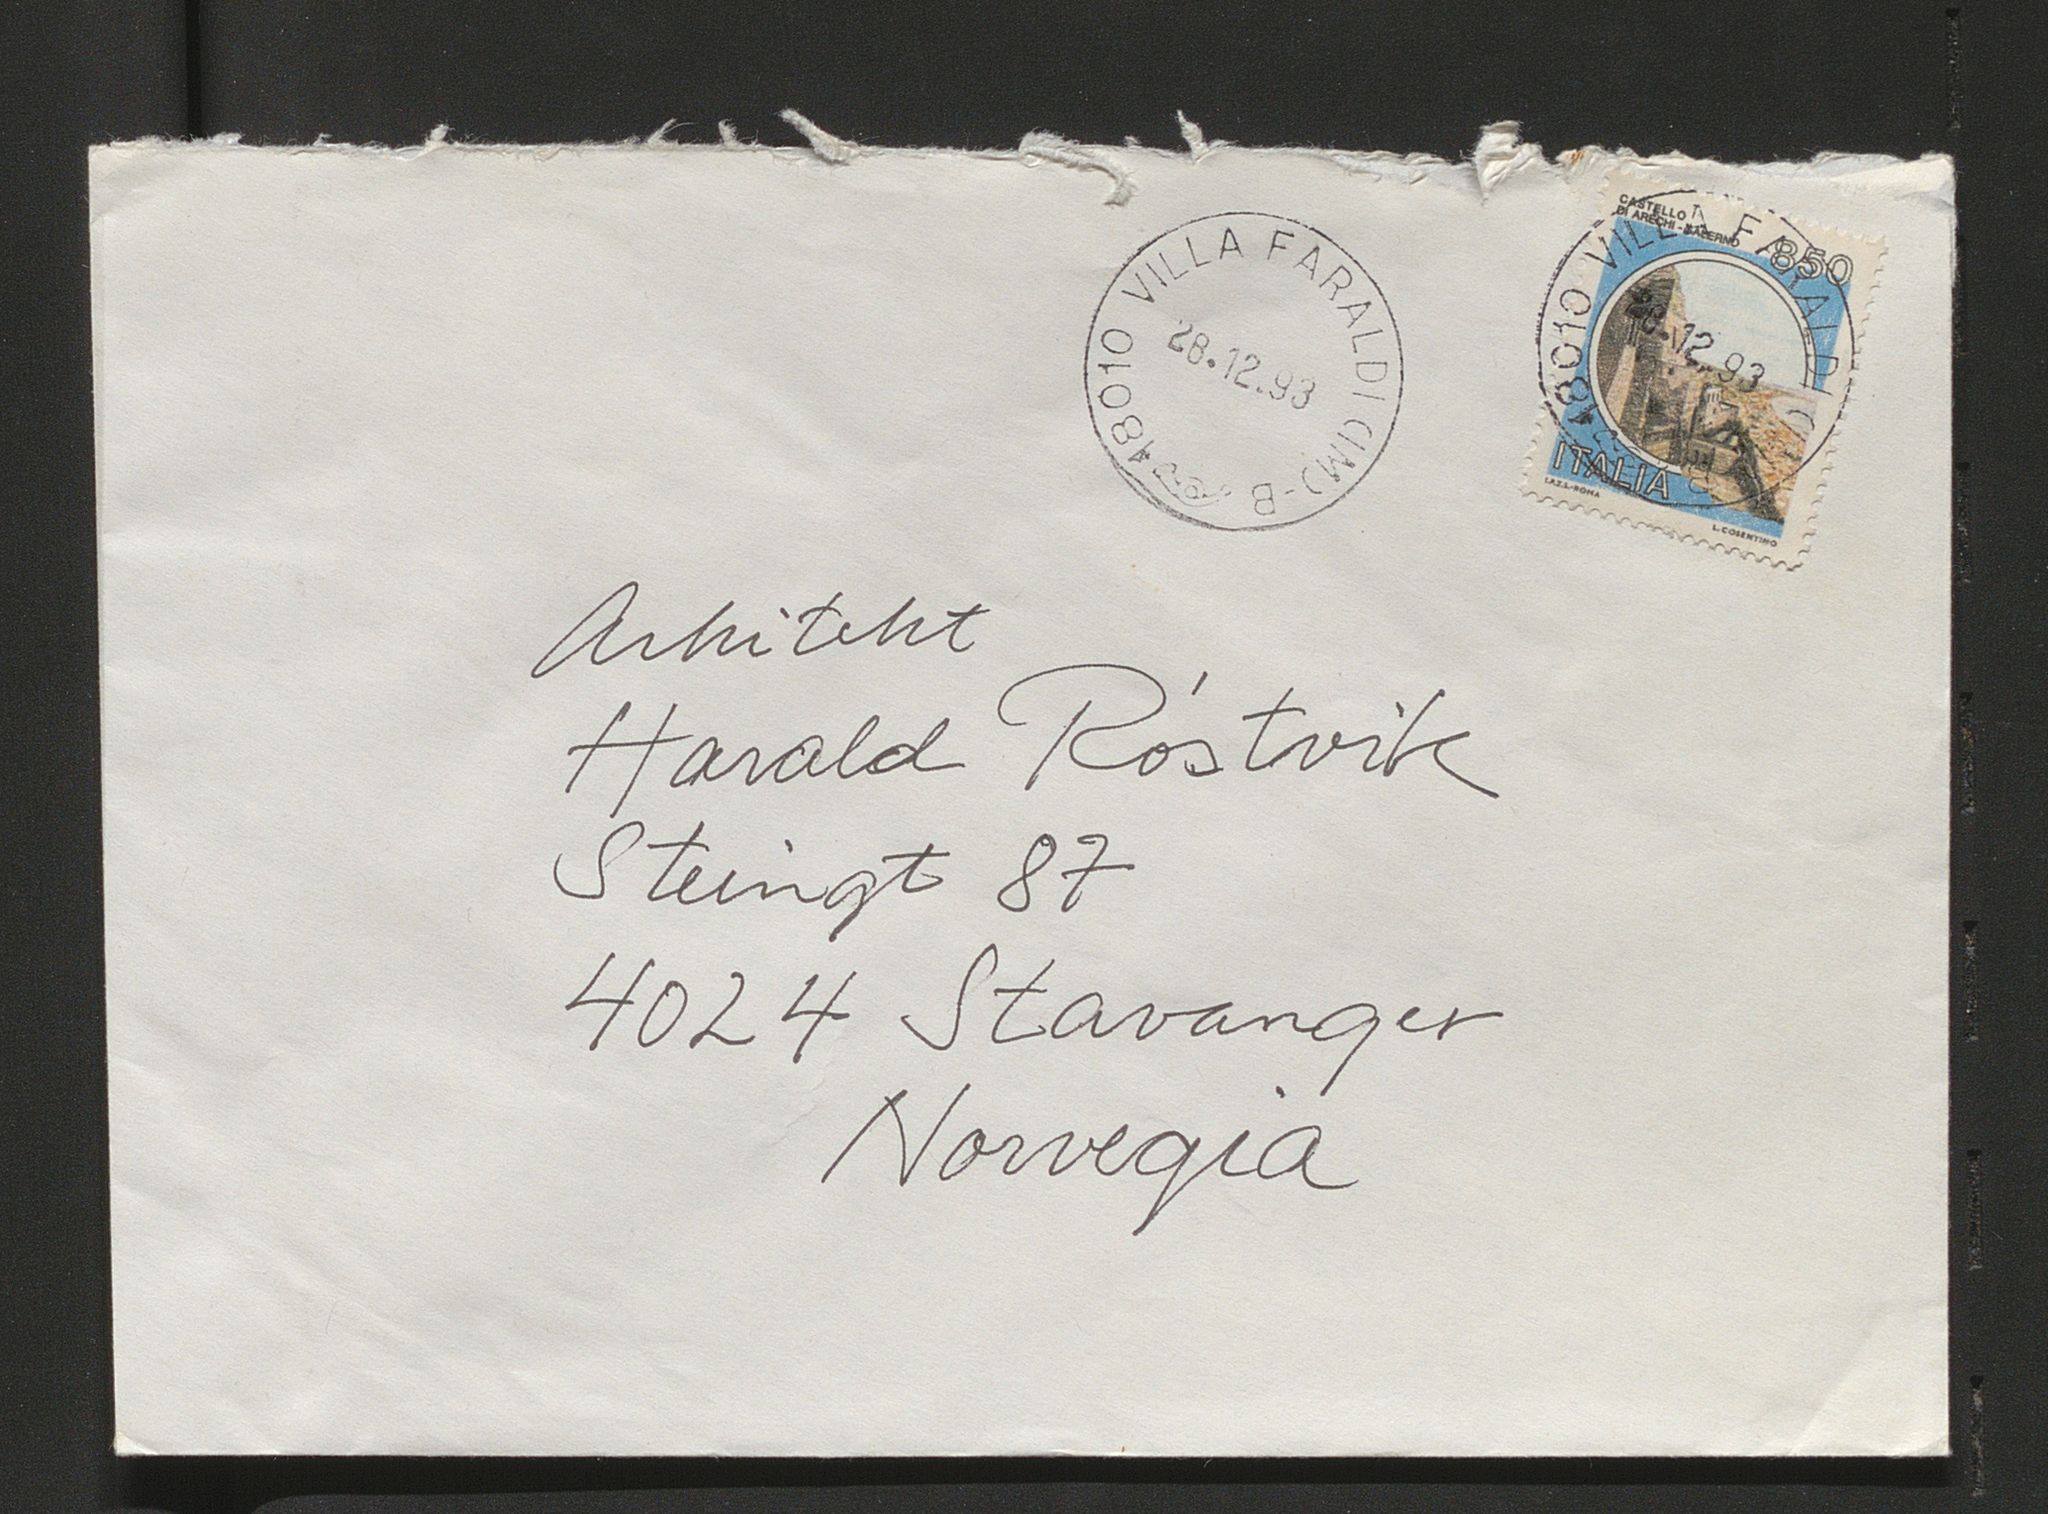 18010 VILLA FARALDI (IM) - B
28.12.93
CASTELLO
DI ARECHI - SALERNO
850
18010 VILLA FARALDI
28.12.93
ITALIA
I.P.Z.S.-ROMA
L. COSENTINO
Arkitekt
Harald Róstvik
Steingt 87
4024 Stavanger
Norvegia